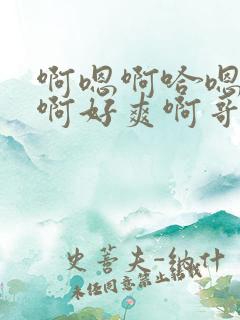 啊嗯啊哈嗯
啊好爽啊哥
史蒈夫-纳什
未经同意禁止转载